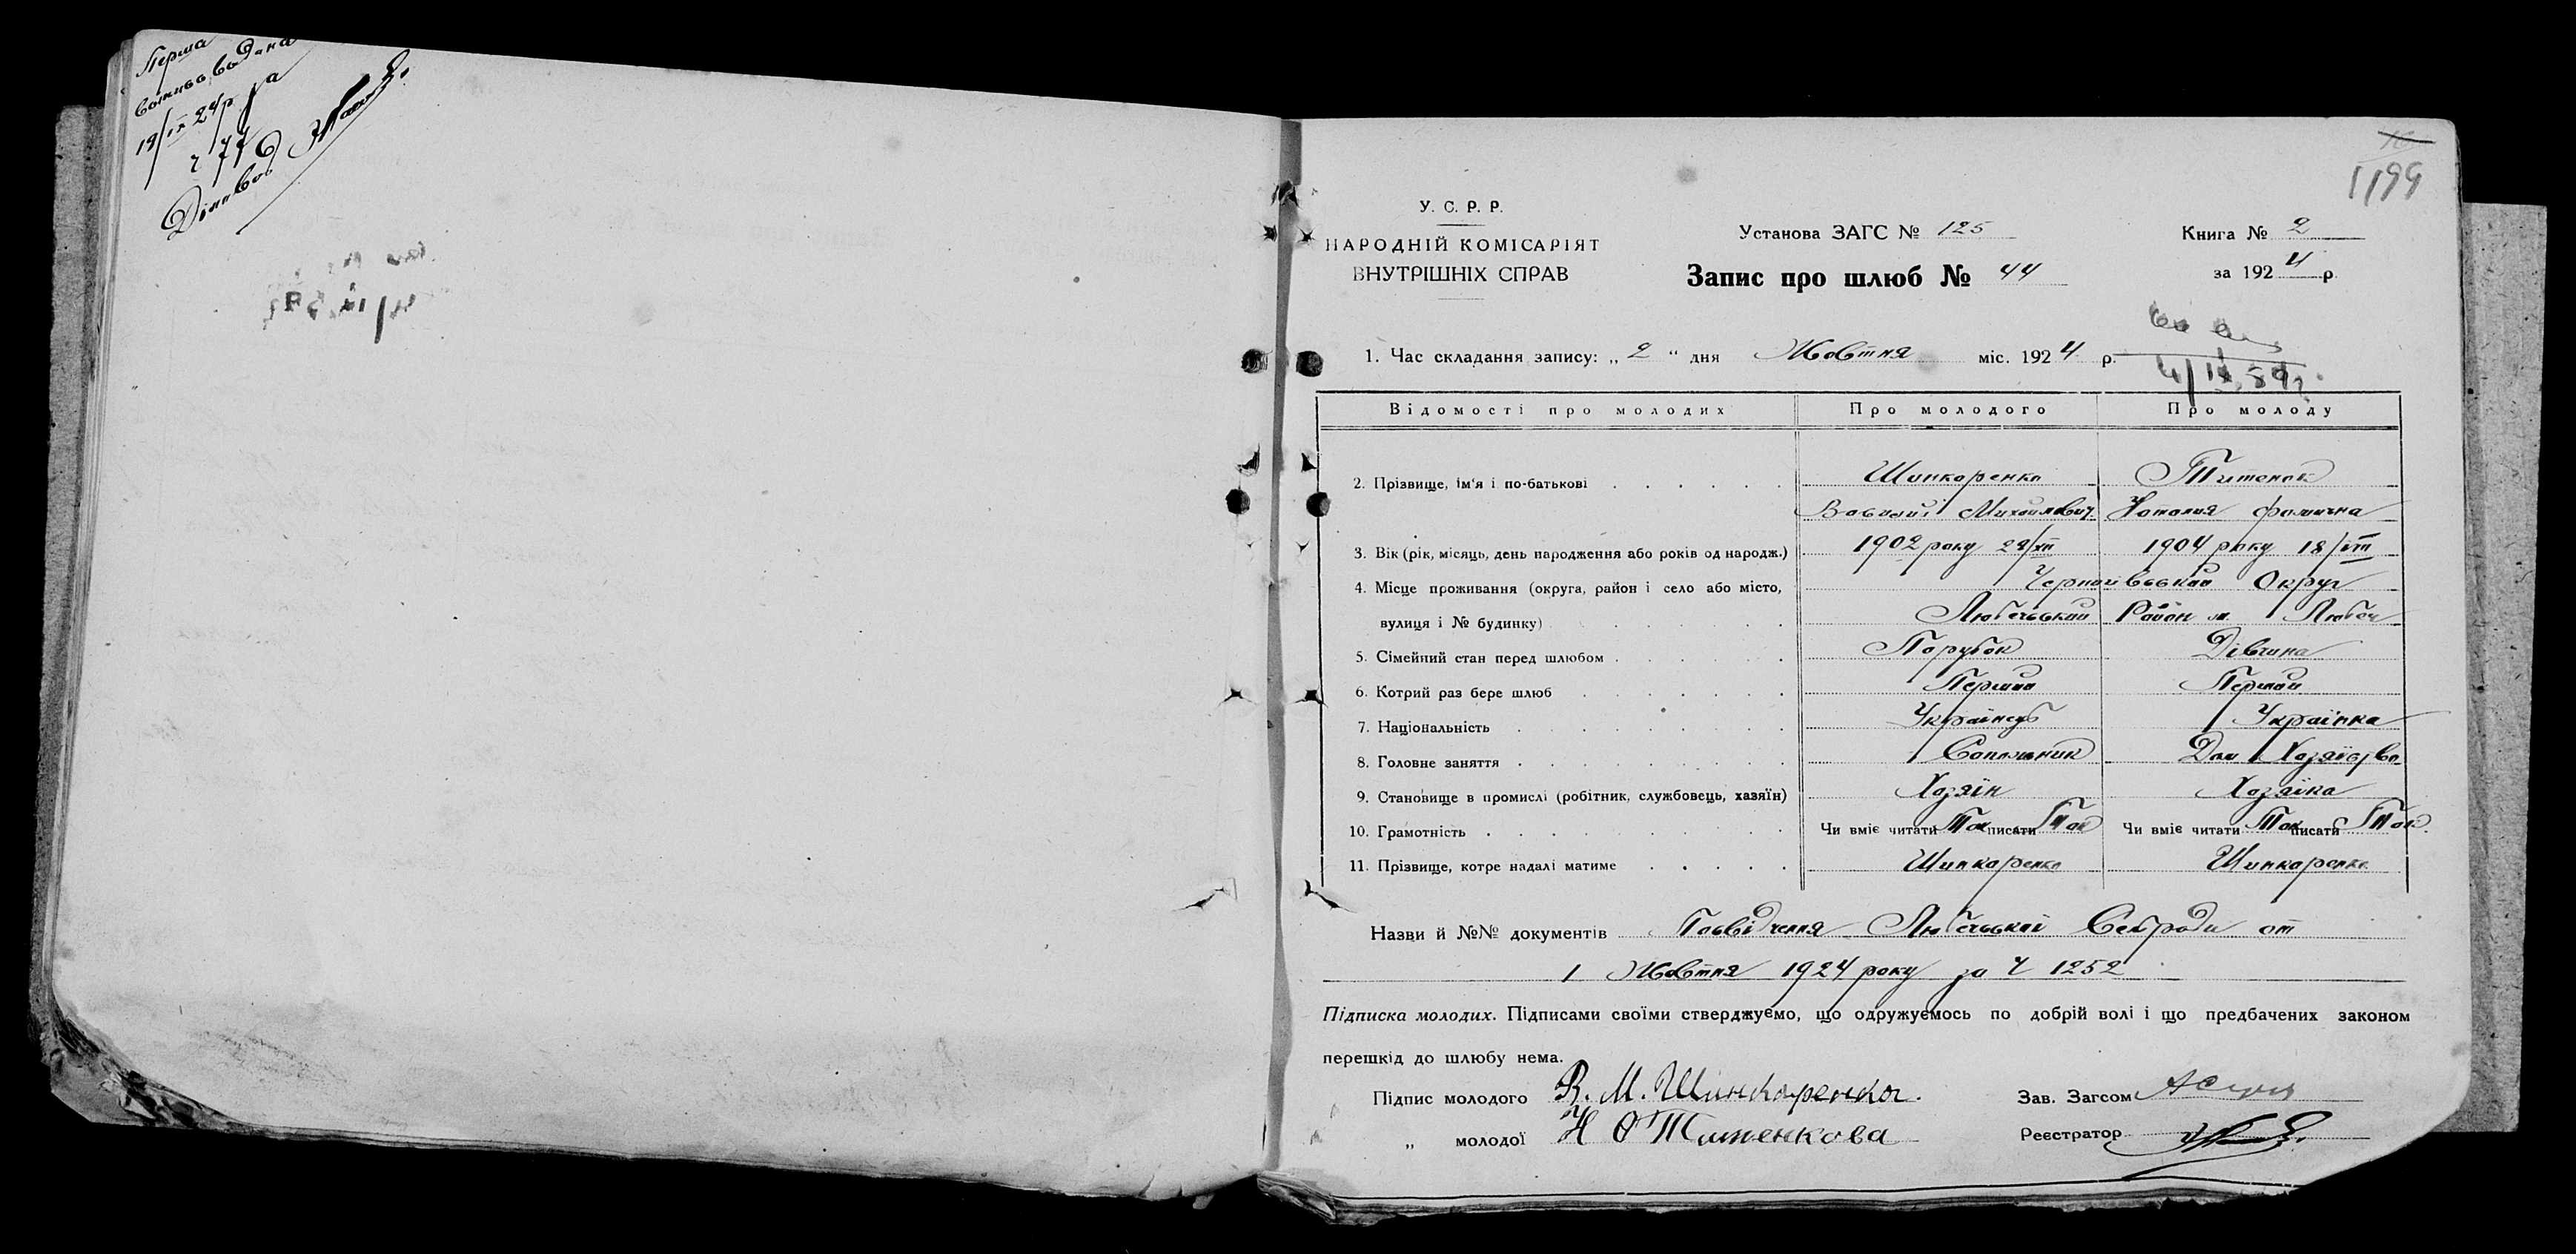 Перша
19/IX 24 р.
У. С. Р. Р.
НАРОДНІЙ КОМІСАРІЯТ
ВНУТРІШНІХ СПРАВ
Установа ЗАГС № 125
Запис про шлюб № 44
Книга № 2
за 1924 р
1199
1. Час складання запису: „ 2 “ дня Жовтня міс. 1924 р.
Відомості про молодих Про молодого Про молоду
2. Прізвище, ім'я і по-батькові Шинкаренко Титенок
Василий Михайлович Наталия Фомична
3. Вік (рік, місяць, день народження або років од народж.) 1902 року 29/XII 1904 року 18/VIII
4. Місце проживання (округа, район і село або місто, Округ
вулиця і № будинку) Любечський Район м. Любеч
5. Сімейний стан перед шлюбом Парубок Дівчина
6. Котрий раз бере шлюб Перший Перший
7. Національність Українець Українка
8. Головне заняття Дом Хозяїство
9. Становище в промислі (робітник, службовець, хазяїн) Хозяїн Хозяїка
10. Грамотність Чи вміє читати Так писати Так Чи вміє читати Так писати Так
11. Прізвище, котре надалі матиме Шинкаренко Шинкаренко
Назви й №№ документів Посвідчення Любечської Сельради от
1 Жовтня 1924 року за Ч 1252
Підписка молодих. Підписами своїми стверджуємо, що одружуємось по добрій волі і що предбачених законом
перешкід до шлюбу нема.
Підпис молодого В. М. Шинкаренко.
Зав. Загсом
„ молодої Н Ѳ Титенкова
Реєстратор